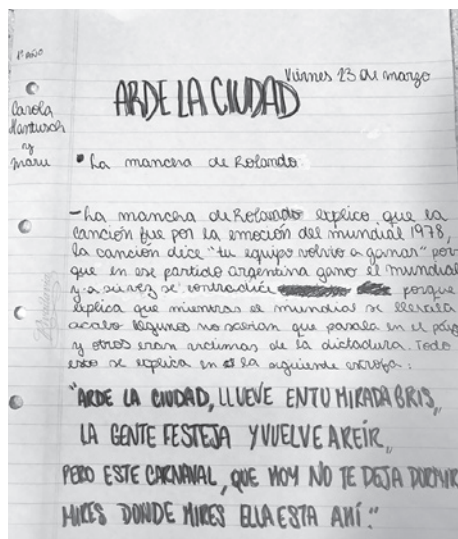 1º año
Viernes 23 de marzo
ARDE LA CIUDAD
Carola
Mantusch
y
Maru
• La mancha de Rolando
- La mancha de Rolando explico que la
canción fue por la emoción del mundial 1978,
la canción dice "tu equipo volvio a ganar" por
que en ese partido argentina gano el mundial
y a su vez se contradice porque
explica que mientras el mundial se llevaba
acabo algunos no sabian que pasaba en el país
y otros eran victimas de la dictadura. Todo
esto se explica en la siguiente estrofa:
"ARDE LA CIUDAD, LLUEVE EN TU MIRADA GRIS,
LA GENTE FESTEJA Y VUELVE A REÍR,
PERO ESTE CARNAVAL, QUE HOY NO TE DEJA DORMIR
MIRES DONDE MIRES ELLA ESTA AHÍ."